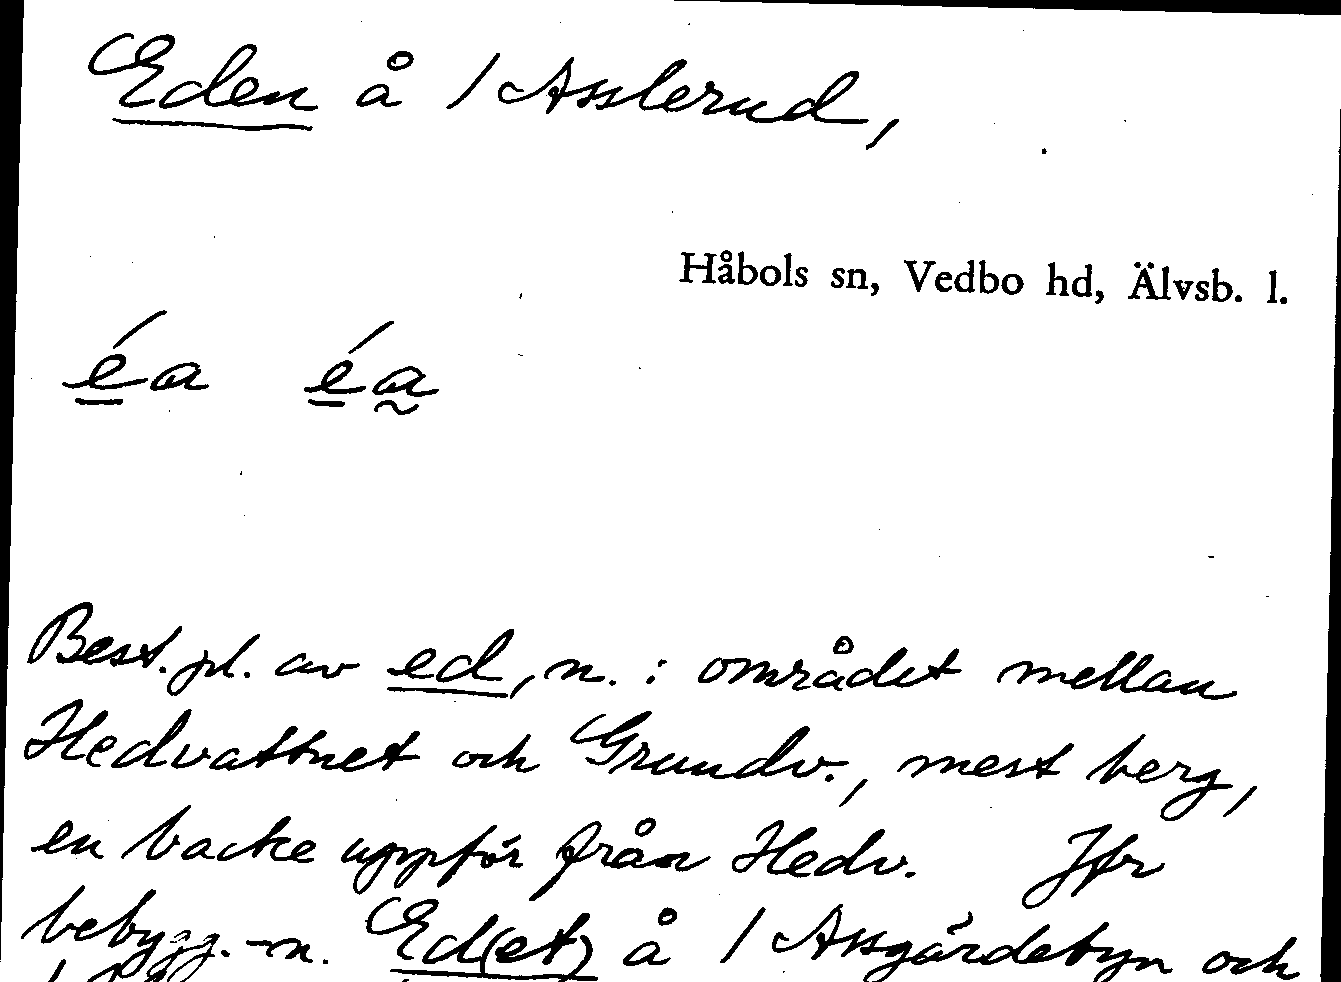 Eden å / Asslerud,
Håbols sn, Vedbo hd, Älvsb. l.
éa éa
Best. pl. av ed, n. : området mellan
Hedvattnet och Grundv., mest berg,
en backe uppför från Hedv. Jfr
bebygg.-n. Ed(et) å / Assgärdebyn och